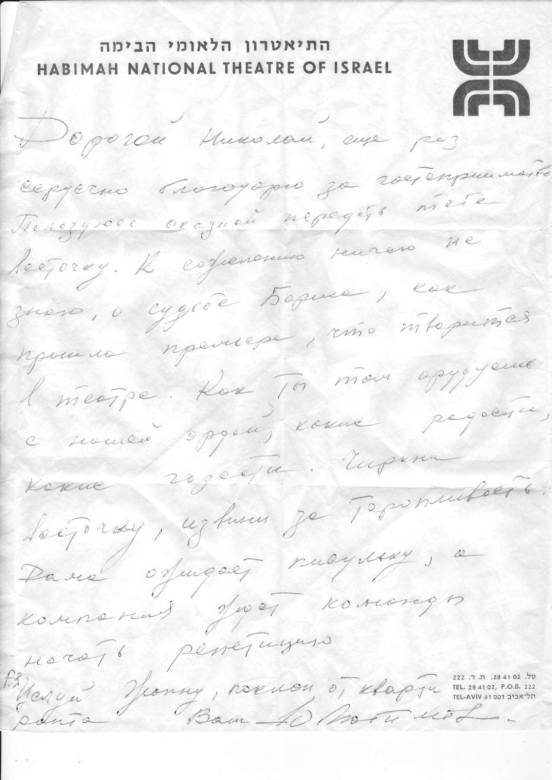 התיאטרון הלאומי הבימה
HABIMAH NATIONAL THEATRE OF ISRAEL
Дорогой Николай, еще раз
сердечно благодарю за гостеприимство
Пользуюсь оказией передать тебе
весточку. К сожалению ничего не
знаю, о судьбе Бориса, как
прошла премьера, что творится
в театре. Как ты там орудуешь
с нашей ордой, какие радости,
какие гадости. Чиркни
весточку, извини за торопливость.
Дама ожидает писульку, а
компания ждет команды
начать репетицию
P.S.
Целуй Жопну, поклон от кварти
ранта Ваш Ю Любимов.
טל. 28 41 02. ת. ד. 222
TEL. 28 41 02, P.O.B. 222
TEL-AVIV 61 001 תל-אביב